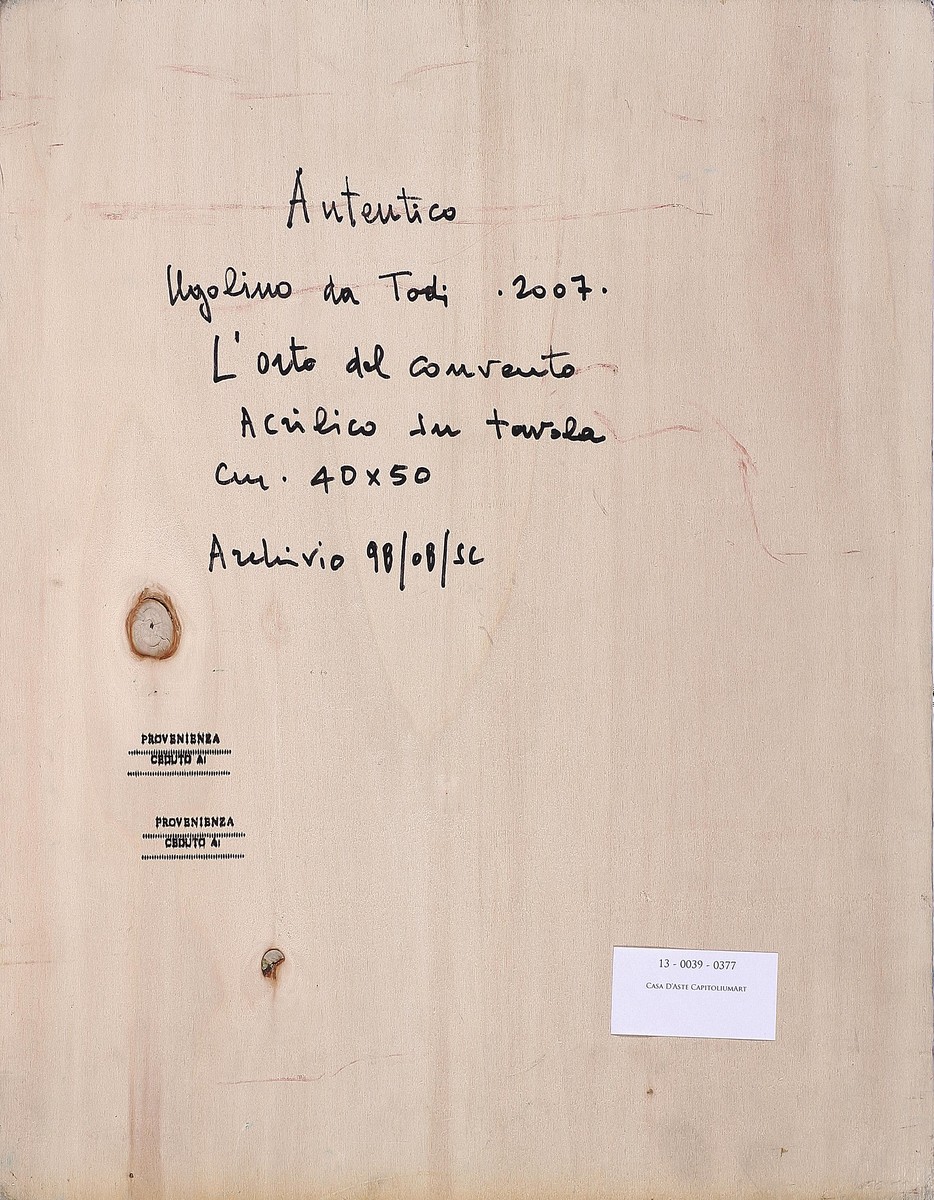 Autentico
Ugolino da Todi . 2007.
L'orto del convento
Acrilico su tavola
Cm. 40x50
Archivio 98/08/SC
PROVENIENZA
CEDUTO AI
PROVENIENZA
CEDUTO AI
13 - 0039 - 0377
CASA D'ASTE CAPITOLIUMART